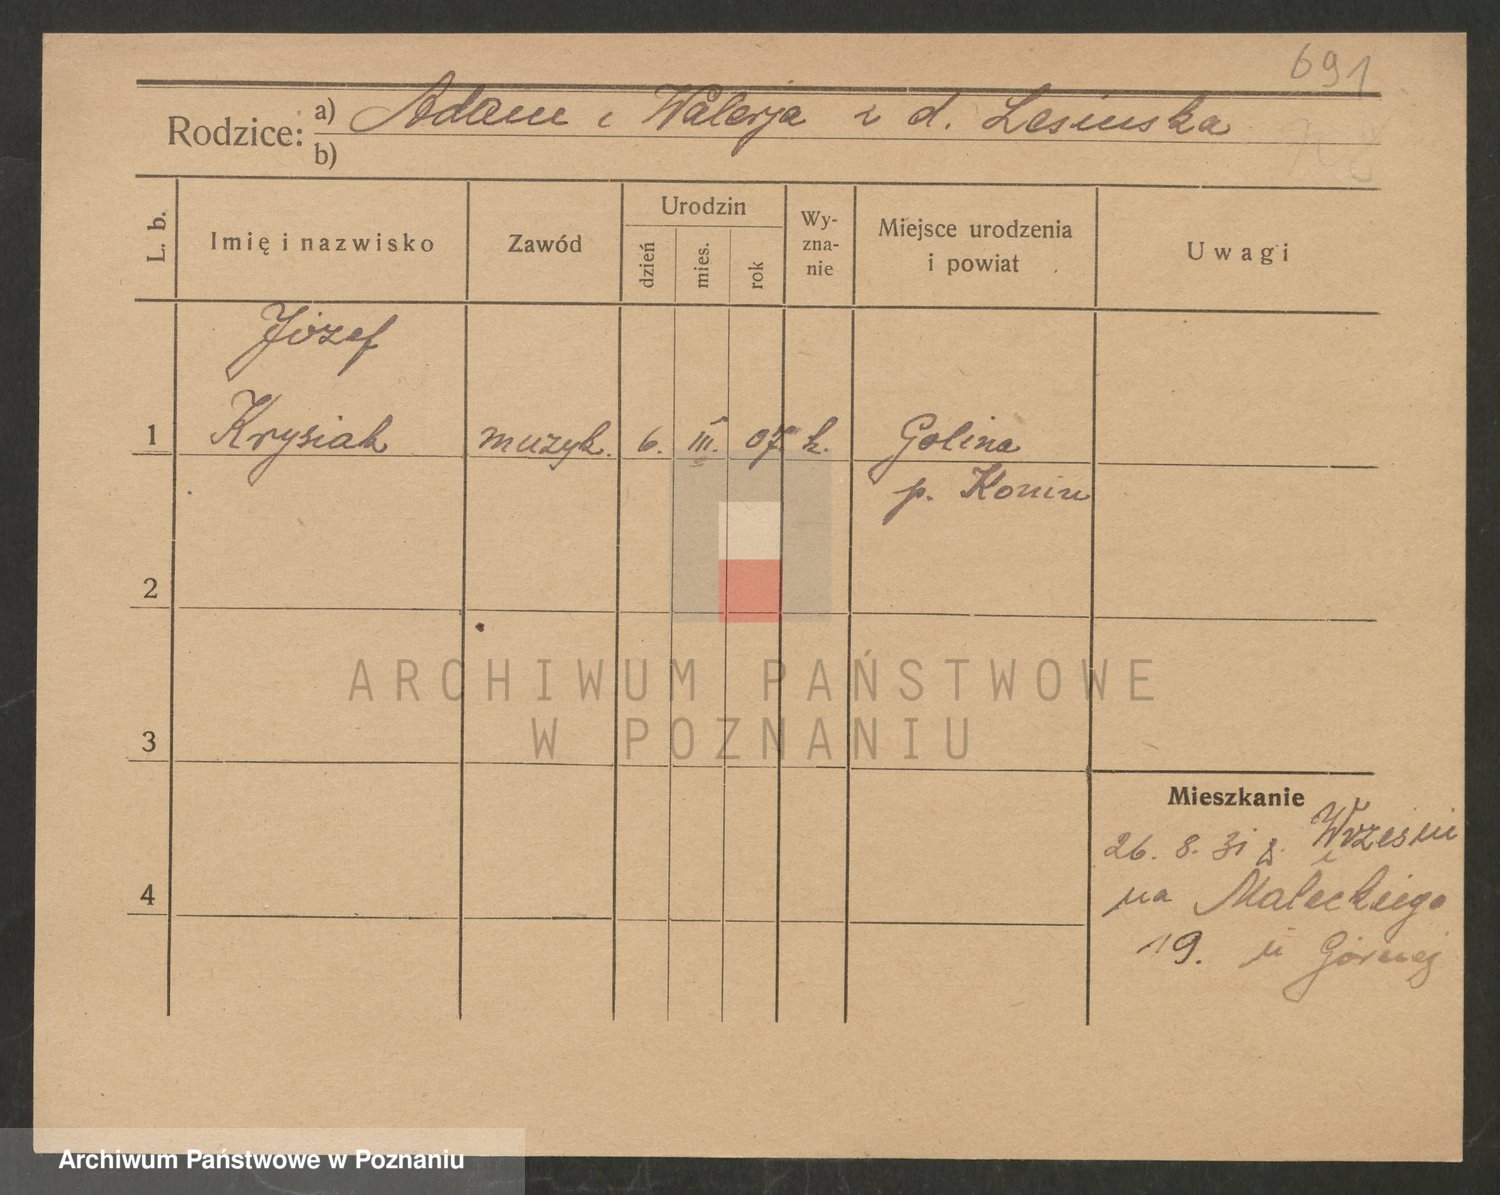 691
Rodzice: a) Adam i Walerja z d. Lesinska
b)
L. b.
Imię i nazwisko
Zawód
Urodzin
dzień
mies.
rok
Wy-
zna-
nie
Miejsce urodzenia
i powiat
Uwagi
Józef
1 Krysiak muzyk. 6. III. 07. k. Golina
p. Konin
2
3
4
ARCHIWUM PAŃSTWOWE
W POZNANIU
Mieszkanie
26. 8. 31 z. Wrześni
na Maleckiego
19. u Górnej
Archiwum Państwowe w Poznaniu